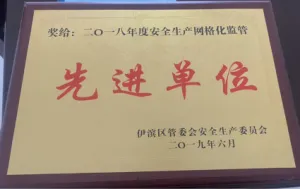 奖给：二〇一八年度安全生产网格化监管
先进单位
伊滨区管委会安全生产委员会
二〇一九年六月